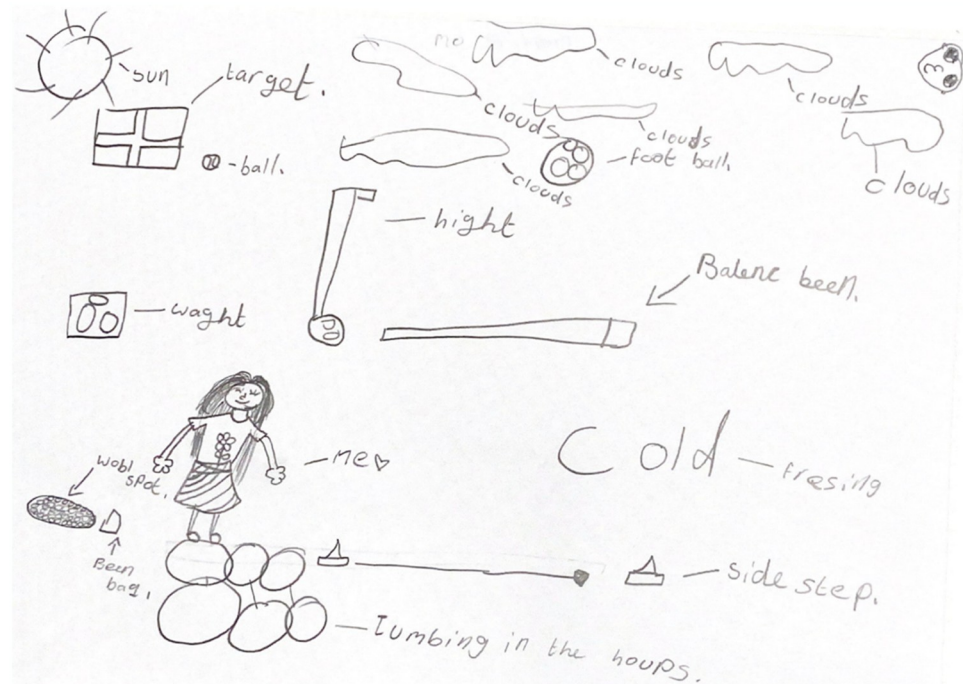 sun
target.
ball.
clouds
clouds
clouds
clouds
clouds
clouds
foot ball.
hight
Balenc been.
waght
me
Cold
fresing
wobl
spot.
Been
bag.
side step.
Jumbing in the houps.